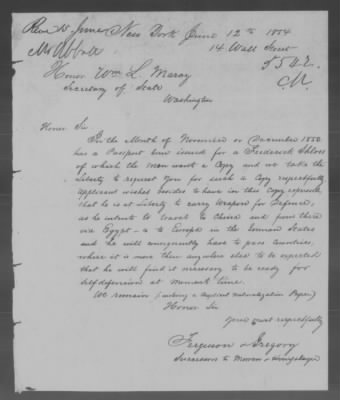 New York June 12th 1854
Mr Abbott
14 Wall Street
Honor Wm L. Marcy
Secretary of State
Washington
Honor Sir
In the Month of November or December 1850
has a Passport been issued for a Frederick
of which the man want a Copy and we take the
liberty to request you for such a Copy respectfully
applicant wishes besides to have in this copy expressed
that he is at liberty to carry Weapon for Defence,
as he intents to travel to China and from there
via Egypt - a to Europa in the States
and he will consequently have to pass Countries,
where it is more than anywhere else to be expected
that he will find it necessary to be ready for
selfdefension at moment time.
We remain (inclosing a Naturalization Paper)
Honor Sir
Your most respectfully
Ferguson & Gregory
Successors to